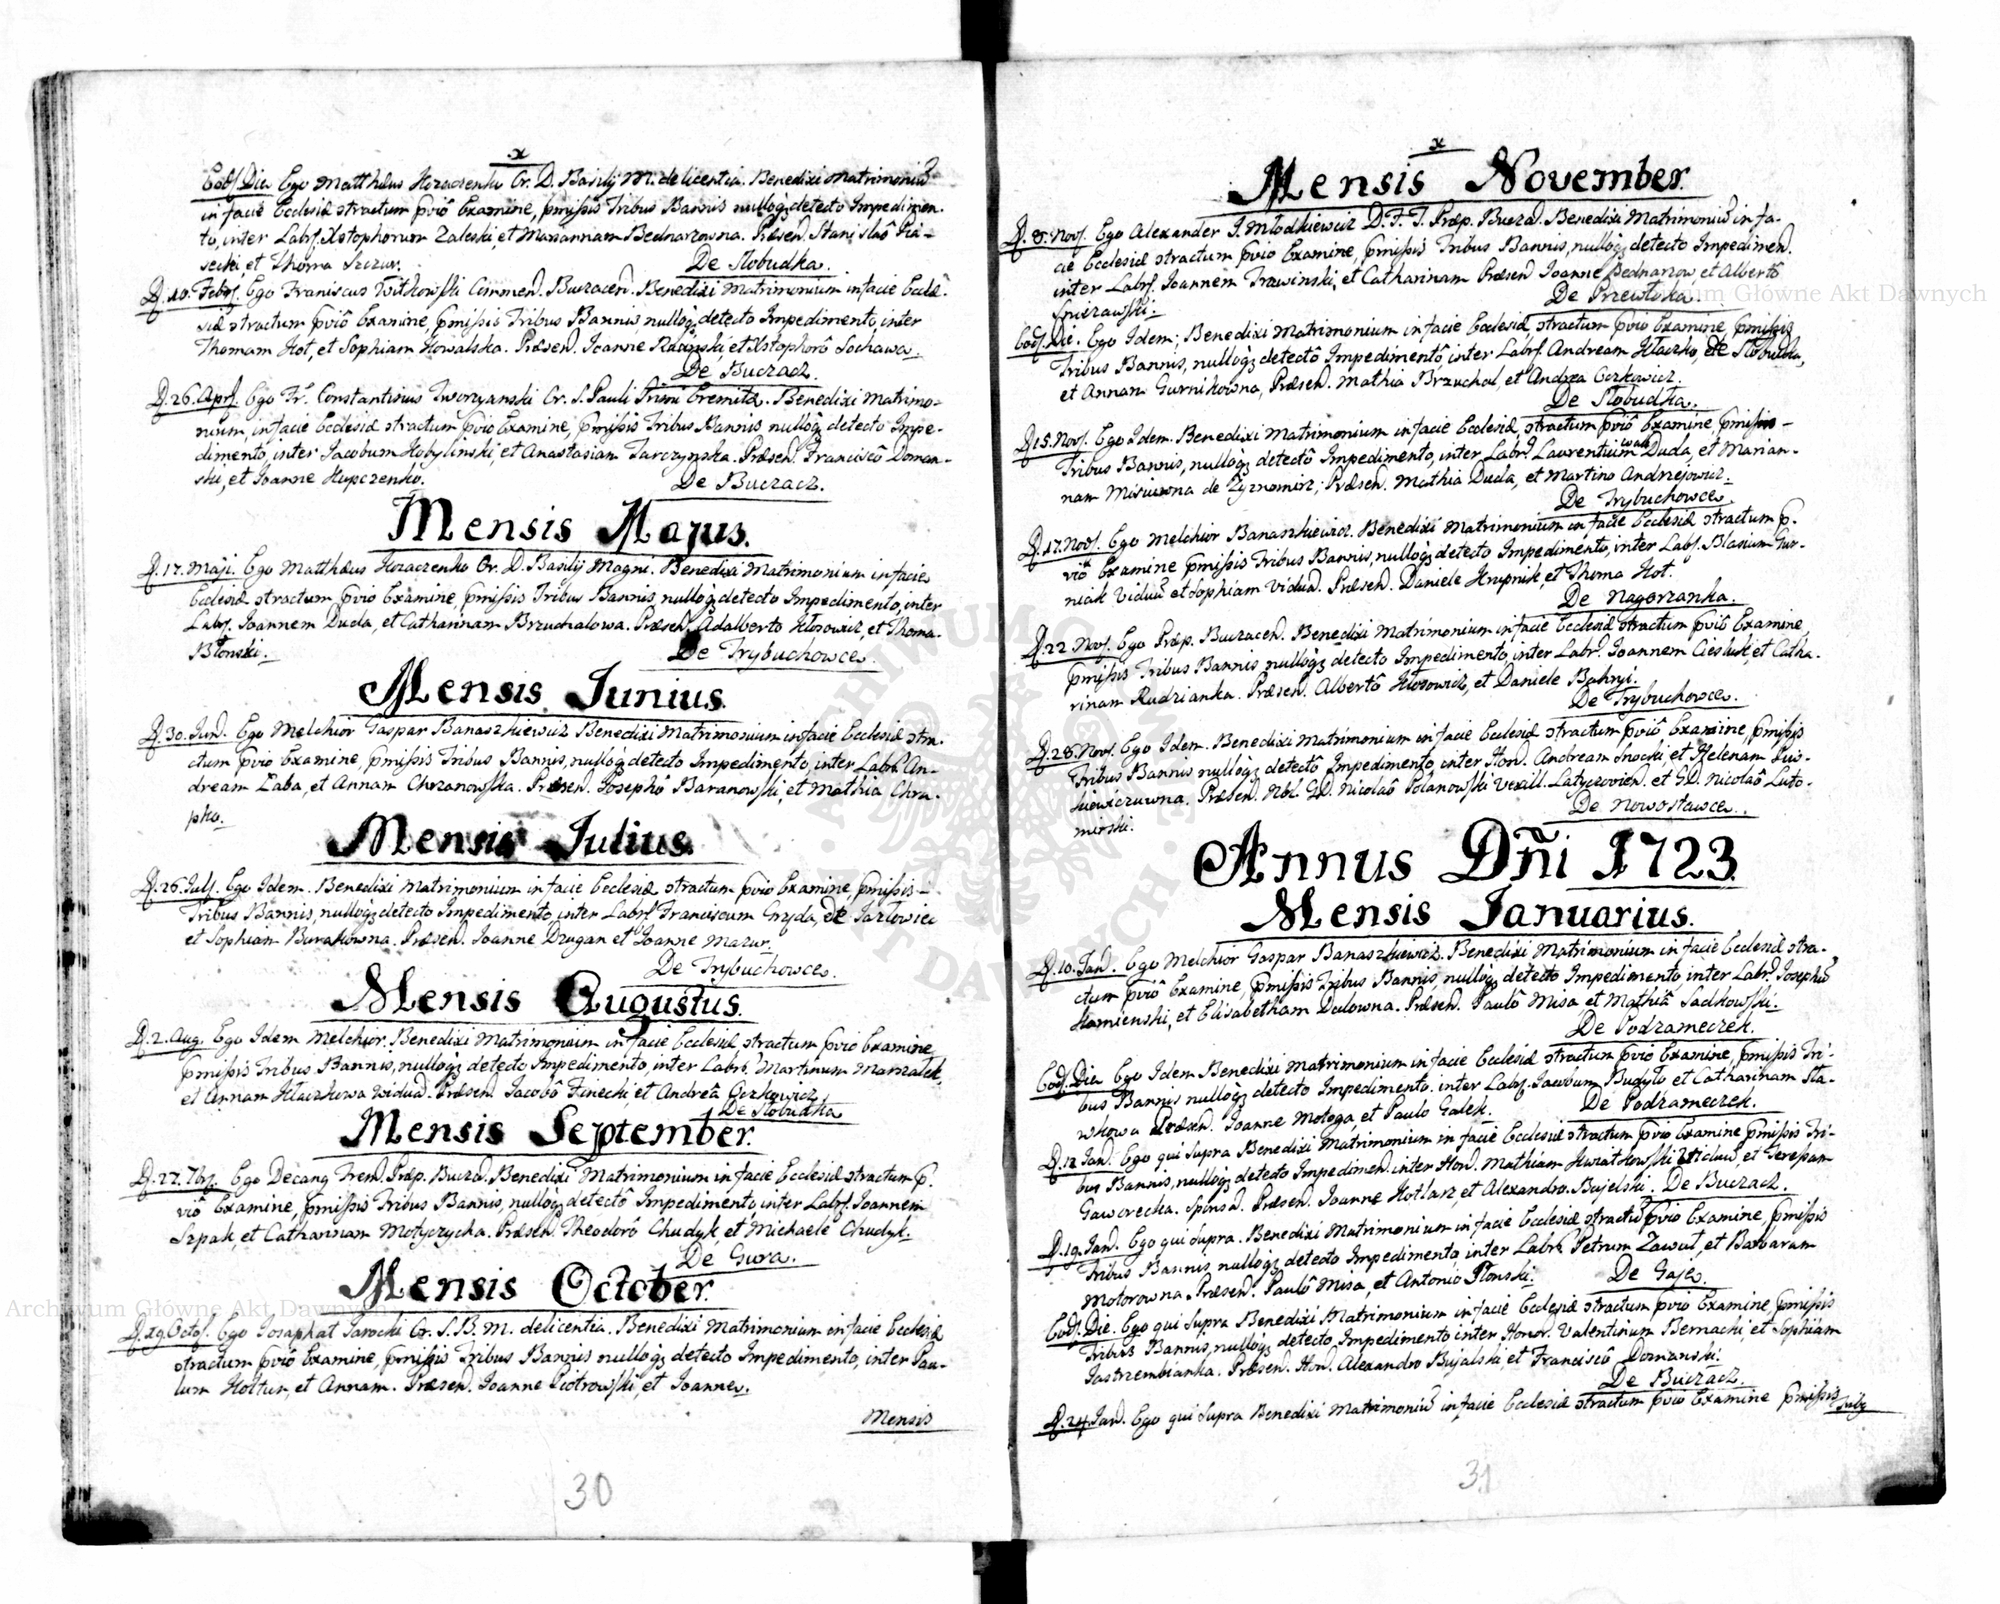 x
Eod. Die Ego Matthæus Kozaczenko Or. D. Basilij M. de licentia. Benedixi Matrimoniũ
in facie Ecclesiæ stractum pviô Examine, pmissis Tribus Bannis nullôqз detecto Impedimen-
to, inter Labr. Xstophorum Zaleski et Mariannam Bednarzowna. Præsen. Stanislaô Pia-
secki et Thoma Szczur.
De Slobudka.
D. 10. Febr. Ego Franiscus Witkowski Commen. Buczacen. Benedixi Matrimonium in facie Eccle-
siæ stractum pviô Examine, pmissis Tribus Bannis, nullôqз detecto Impedimento, inter
Thomam Kot, et Sophiam Kowalska. Præsen. Joanne Raczyński, et Xstophorô Sochawa.
De Buczacz.
D. 26. Apr. Ego Fr. Constantinus Tworzyanski Or. S. Pauli Primi Eremitæ. Benedixi Matrimo-
nium, in facie Ecclesiæ stractum pviô Examine, pmissis Tribus Bannis nullôqз detecto Impe-
dimento, inter Jacobum Kobylinski, et Anastasiam Tarczynska. Præsen. Franciscô Doman-
ski, et Joanne Kupczenko.
De Buczacz.
Mensis Majus.
D. 17. Maji. Ego Matthæus Kozaczenko Or. D. Basilij Magni. Benedixi Matrimonium in facie
Ecclesiæ stractum pviô Examine, pmissis Tribus Bannis nullôqз detecto Impedimento, inter
Labr. Joannem Duda, et Catharinam Brzuchalowa. Præsen. Adalberto Klosowicz, et Thoma
Błonski.
De Trybuchowce.
Mensis Junius.
D. 30. Jun. Ego Melchior Gaspar Banaszkiewicz Benedixi Matrimonium in facie Ecclesiæ stra-
ctum pviô Examine, pmissis Tribus Bannis, nullôqз detecto Impedimento, inter Labr. An-
dream Łaba, et Annam Chrzanowska. Præsen. Josephô Baranowski, et Mathia Chra-
pko.
Mensis Julius.
D. 26. Jul. Ego Idem. Benedixi Matrimonium in facie Ecclesiæ stractum pviô Examine, pmissis
Tribus Bannis, nullôqз detecto Impedimento, inter Labr. Franciscum Gryda, de Jazłowiec
et Sophiam Burakowna. Præsen. Joanne Dzugan et Joanne Mazur.
De Trybuchowce.
Mensis Augustus.
D. 2. Aug. Ego Idem Melchior. Benedixi Matrimonium in facie Ecclesiæ stractum pviô Examine,
pmissis Tribus Bannis, nullôqз detecto Impedimento, inter Labr. Martinum Marszalek,
et Annam Klaczkowa Viduã. Præsen. Jacobô Ziniecki, et Andreâ Oczkowicz.
De Slobudka
Mensis September.
D. 22. 7br. Ego Decang Trem. Præp. Buczac. Benedixi Matrimonium in facie Ecclesiæ stractum p-
viô Examine, pmissis Tribus Bannis, nullôqз detectô Impedimento, inter Labr. Joannem
Szpak, et Catharinam Motyczycha. Præsen. Theodorô Chudyk, et Michaele Chudyk.
De Gura.
Mensis October.
D. 29. Octo. Ego Josaphat Jarocki Or. S. B. M. de licentia. Benedixi Matrimonium in facie Ecclesiæ
stractum pviô Examine, pmissis Tribus Bannis nullôqз detecto Impedimento, inter Pau-
lum Koltun, et Annam. Præsen. Joanne Piotrowski, et Joanne.
Mensis
30
x
Mensis November.
D. 8. Nov. Ego Alexander J. Młodkiewicz D. F. T. Præp. Buczac. Benedixi Matrimoniũ in fa-
cie Ecclesiæ stractum pviô Examine, pmissis Tribus Bannis, nullôqз detecto Impedimen.
inter Labr. Joannem Trawinski, et Catharinam Præsen Joanne Bednarzow, et Albertô
Spierawski.
De Przewłoka.
Eod. Die. Ego Idem; Benedixi Matrimonium in facie Ecclesiæ, stractum pviô Examine, pmissis
Tribus Bannis, nullôqз detectô Impedimentô, inter Labr. Andream Klaczko, de Slobudka,
et Annam Gurnikowna, Præsen. Mathia Brzuchal, et Andrea Oczkowicz.
De Slobudka.
D. 15. Nov. Ego Idem. Benedixi Matrimonium in facie Ecclesiæ, stractum pviô Examine, pmissis
Tribus Bannis, nullôqз detectô Impedimento, inter Labr. Laurentium Duda, et Marian-
nam Misiuwna de Zyznomirz; Præsen. Mathia Duda, et Martino Andrzejowicz.
De Trybuchowce.
D. 17. Nov. Ego Melchior Banaszkiewicz. Benedixi Matrimonium in facie Ecclesiæ stractum p-
viô Examine pmissis Tribus Bannis, nullôqз detecto Impedimento, inter Labr. Blasium Gur-
niak Viduũ et Sophiam Viduã. Præsen. Daniele Krupnik, et Thoma Kot.
De Nagorzanka.
D. 22 Nov. Ego Præp. Buczacen. Benedixi Matrimonium in facie Ecclesiæ stractum pviô Examine,
pmissis Tribus Bannis nullôqз detecto Impedimento, inter Labr. Joannem Ciesluk, et Catha-
rinam Rudzianka. Præsen. Albertô Klosowicz, et Daniele Bahryj.
De Trybuchowce.
D. 28. Nov. Ego Idem. Benedixi Matrimonium in facie Ecclesiæ stractum pviô Examine, pmissis
Tribus Bannis nullôqз detectô Impedimento, inter Hon. Andream Snocki, et Helenam Piw-
kiewiczuwna. Præsen. Nbl. GD. Nicolaô Polanowski Vexill. Latyczovien. et GD. Nicolaô Luto-
mirski.
De Nowostawce.
Annus Dñi 1723.
Mensis Januarius.
D. 10. Jan. Ego Melchior Gaspar Banaszkiewicz. Benedixi Matrimonium in facie Ecclesiæ stra-
ctum pviô Examine, pmissis Tribus Bannis, nullôqз detecto Impedimento, inter Labr. Josephũ
Kamienski, et Elisabetham Dulowna. Præsen. Paulô Misa, et Mathiâ Sadkowski.
De Podzameczek.
Eod. Die Ego Idem Benedixi Matrimonium in facie Ecclesiæ stractum pviô Examine, pmissis Tri-
bus Bannis nullôqз detecto Impedimento. inter Labr. Jacobum Budyło et Catharinam Sła-
wkowa Præsen. Joanne Motoga, et Paulo Galek.
De Podzameczek.
D. 12 Jan. Ego qui supra Benedixi Matrimonium in facie Ecclesiæ stractum pviô Examine pmissis Tri-
bus Bannis, nullôqз detecto Impedimen. inter Hon. Mathiam Kwiatkowski Viduũ, et Terepam
Gaworecka. Præsen. Joanne Kotlarz, et Alexandro. Bujelski. De Buczacz.
D. 19. Jan. Ego qui Supra. Benedixi Matrimonium in facie Ecclesiæ stractũ pviô Examine, pmissis
Tribus Bannis nullôqз detecto Impedimento, inter Labr. Petrum Zawuł, et Barbaram
Motorowna Præsen. Paulô Misa, et Antonio Płonski.
De Gaje.
Eod. Die. Ego qui Supra Benedixi Matrimonium in facie Ecclesiæ stractum pviô Examine, pmissis
Tribus Bannis, nullôqз detecto Impedimento inter Honor. Valentinum Bernacki, et Sophiam
Jastrzembianka. Præsen. Hon. Alexandro Bujalski, et Franciscô Domanski.
De Buczacz.
D. 24. Jan. Ego qui Supra Benedixi Matrimoniũ in facie Ecclesiæ stractum pviô Examine pmissis
31
Archiwum Główne Akt Dawnych
Archiwum Główne Akt Dawnych
ARCHIWUM GŁÓWNE AKT DAWNYCH